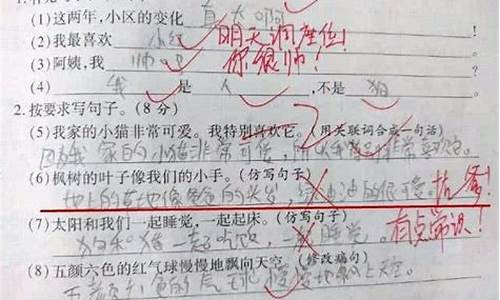 (1)这两年,小区的变化 真大啊
(2)我最喜欢 小红 明天调座位!
(3)阿姨,我 帅吗 你很帅!
(4) 我 是 人 ,不是 狗
2.按要求写句子。(8分)
(5)我家的小猫非常可爱。我特别喜欢它。(用关联词合成一句话)
因为我家的小猫非常可爱,所以我非常喜欢它。
(6)枫树的叶子像我们的小手。(仿写句子)
地上的草地像爸爸的头发,绿油油的很可爱。抗争!
(7)太阳和我们一起睡觉,一起起床。(仿写句子)
狗和猪一起吃饭,一起睡觉。有点常识!
(8)五颜六色的红气球慢慢地飘向天空。(修改病句)
五颜六色的气球慢慢地飘上天空。